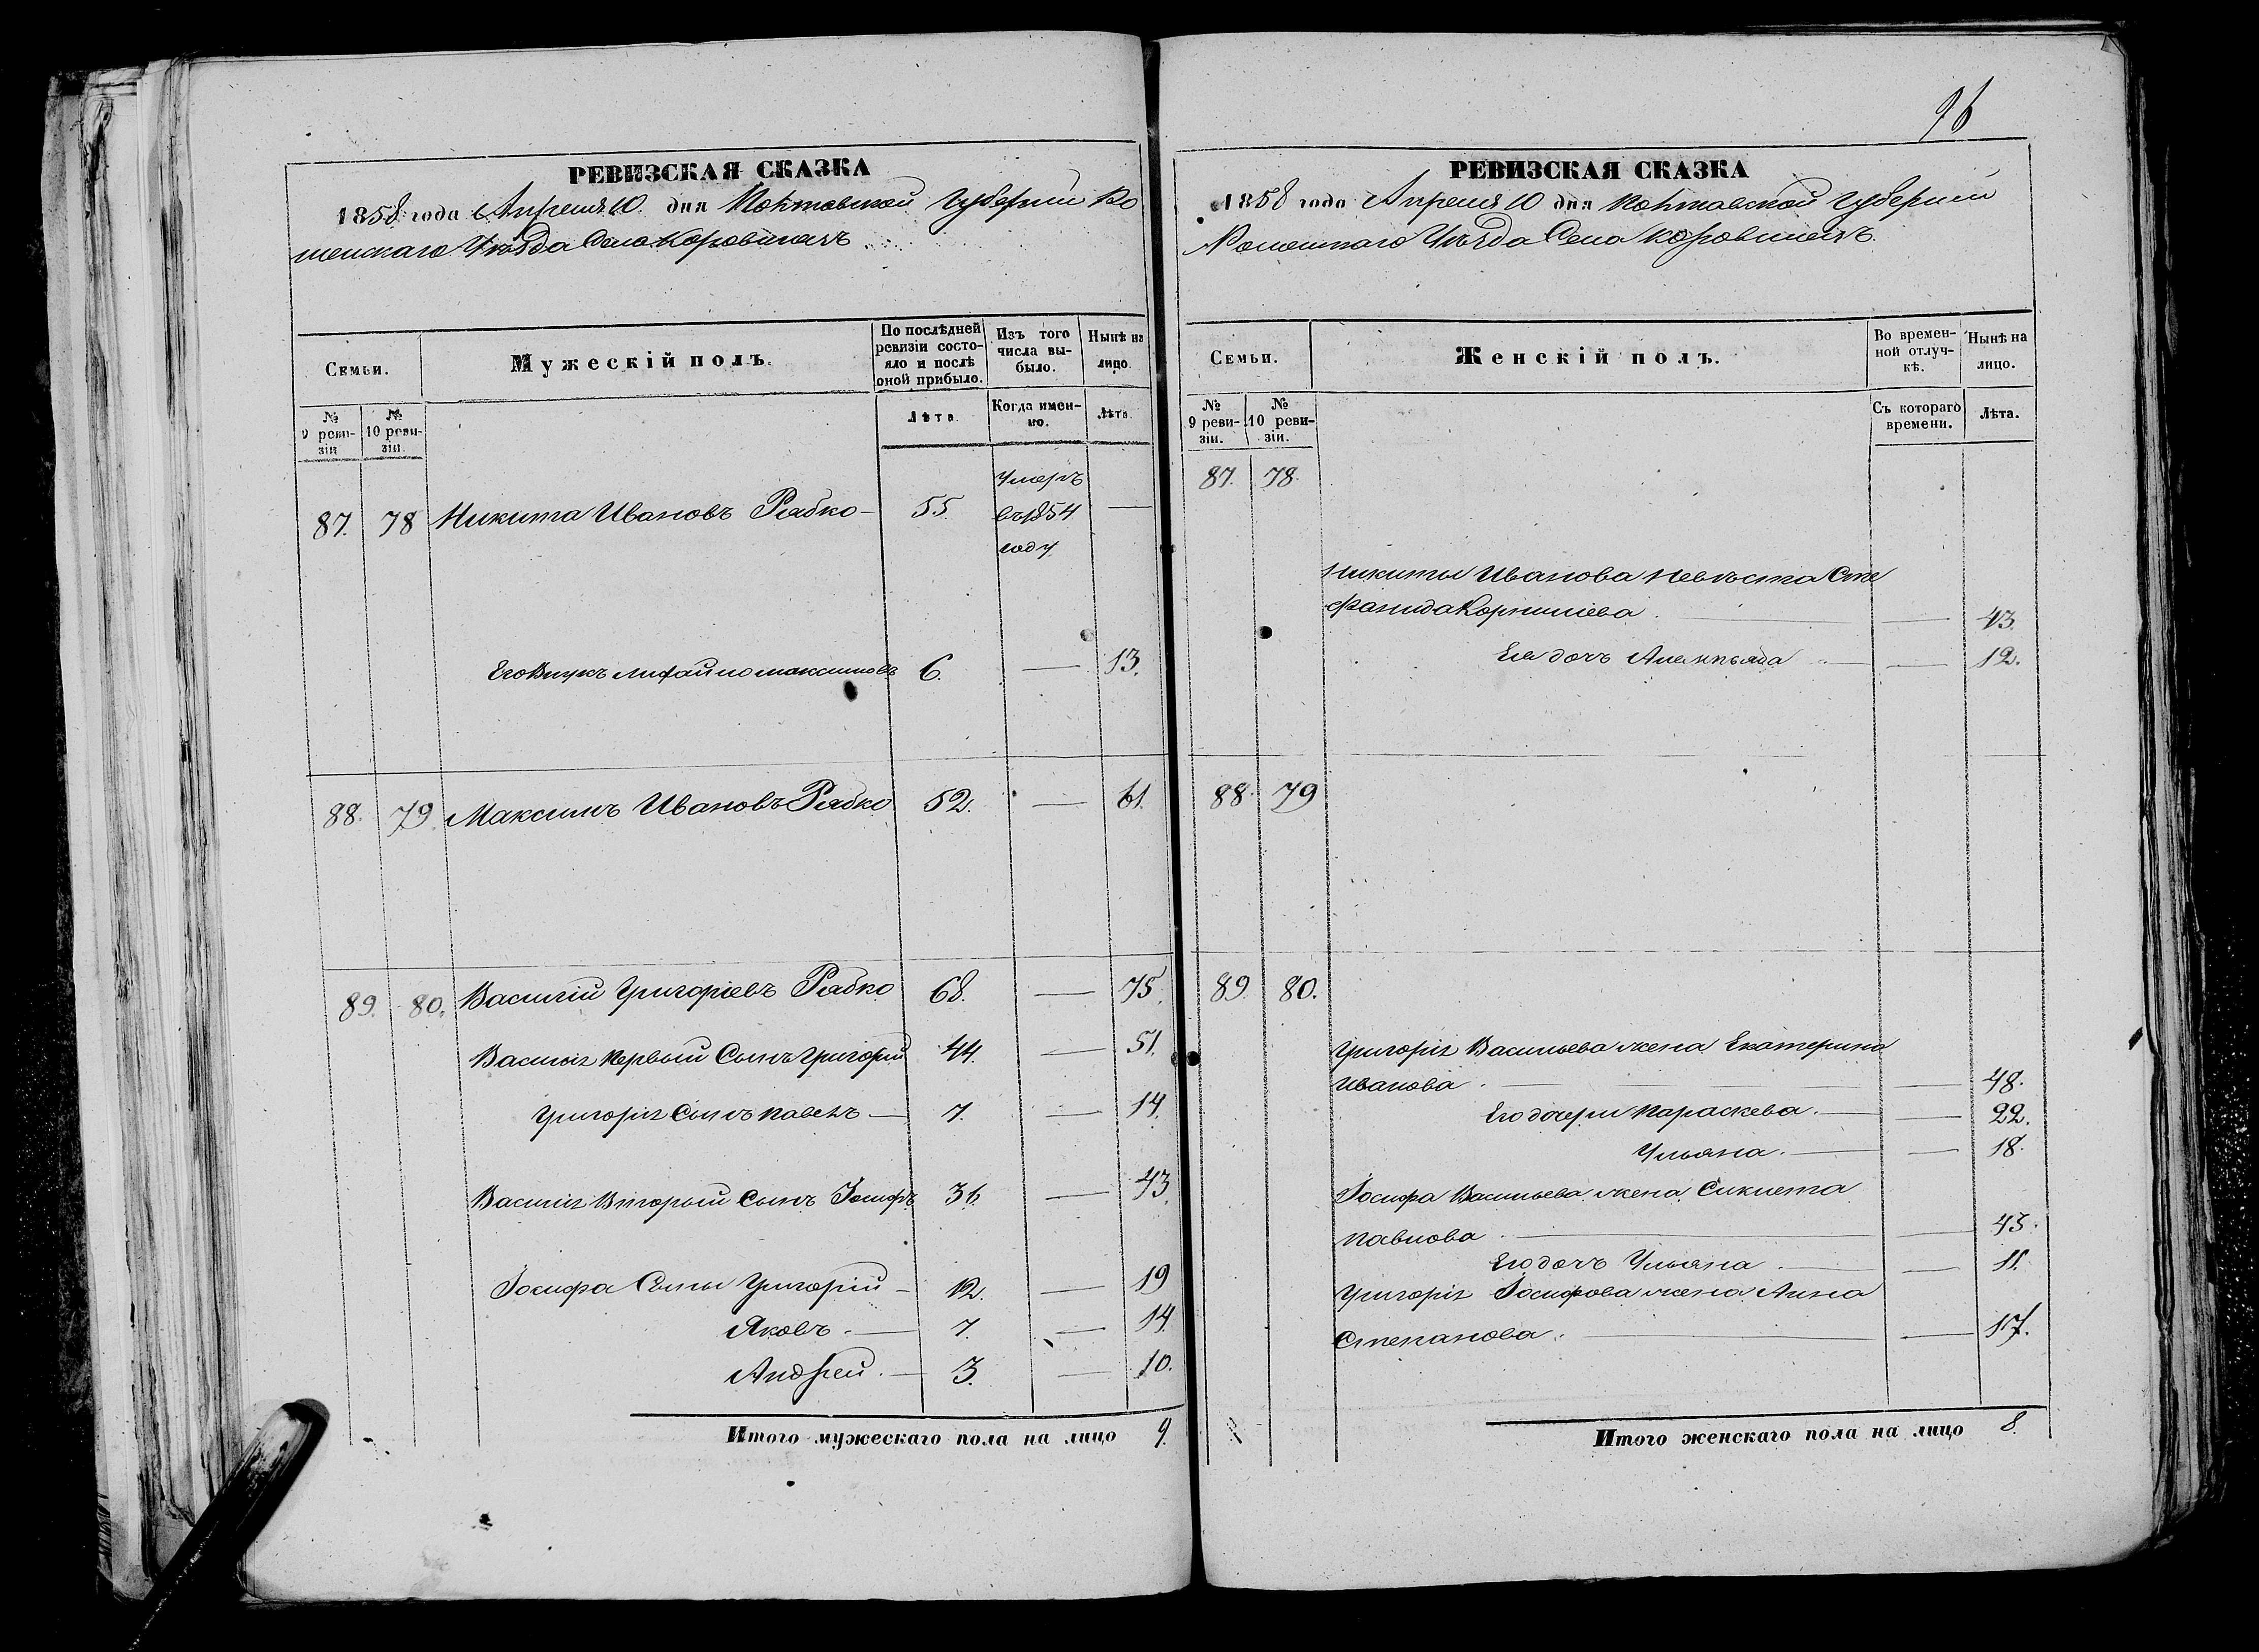 РЕВИЗСКАЯ СКАЗКА
1858 года Апреля 10 дня Полтавской Губернии Ро
менскаго Уѣзда Села Коровинецъ
Семьи.
Мужескій полъ.
По послѣдней ревизіи состояло и послѣ оной прибыло.
Изъ того числа выбыло.
Нынѣ на лицо.
№ 9 ревизіи
№ 10 ревизіи.
Лѣта
Когда именно.
Лѣта.
87. 78 Никита Ивановъ Рябко 55. Умеръ въ 1854 году —
Его Внукъ Максимовъ 6. — 13.
88. 79 Максимъ Ивановъ Рябко 52. — 61.
89. 80. Василій Григоріевъ Рябко 68. — 75.
Василія Первый Сынъ Григорій 44. — 51.
Григорія Сынъ Павелъ — 7. — 14.
Василія Вторый Сынъ Іосифъ 36. — 43.
Іосифа Сыны Григорій — 12. — 19
Яковъ. — 7. — 14.
Андрей. — 3. — 10.
Итого мужескаго пола на лицо 9.
96
РЕВИЗСКАЯ СКАЗКА
1858 года Апреля 10 дня Полтавской Губерніи
Роменскаго Уѣзда Села Коровинецъ.
Семьи.
Женскій полъ.
Во временной отлучкѣ.
Нынѣ на лицо.
№ 9 ревизіи.
№ 10 ревизіи.
Съ котораго времени.
Лѣта.
87. 78.
Никиты Иванова Невѣста Сте
фанида Корниліева — — 43.
Ея дочь — — 12.
88. 79
89 80.
Григорія Васильева жена Екатерина
Иванова. — — 48.
Его дочери Параскева. — — 22.
Ульяна. — — 18.
Іосифа Васильева жена
Павлова. — — 43.
Его дочь Ульяна. — — 11.
Григорія Іосифова жена Анна
Степанова. — — 17.
Итого женскаго пола на лицо 8.